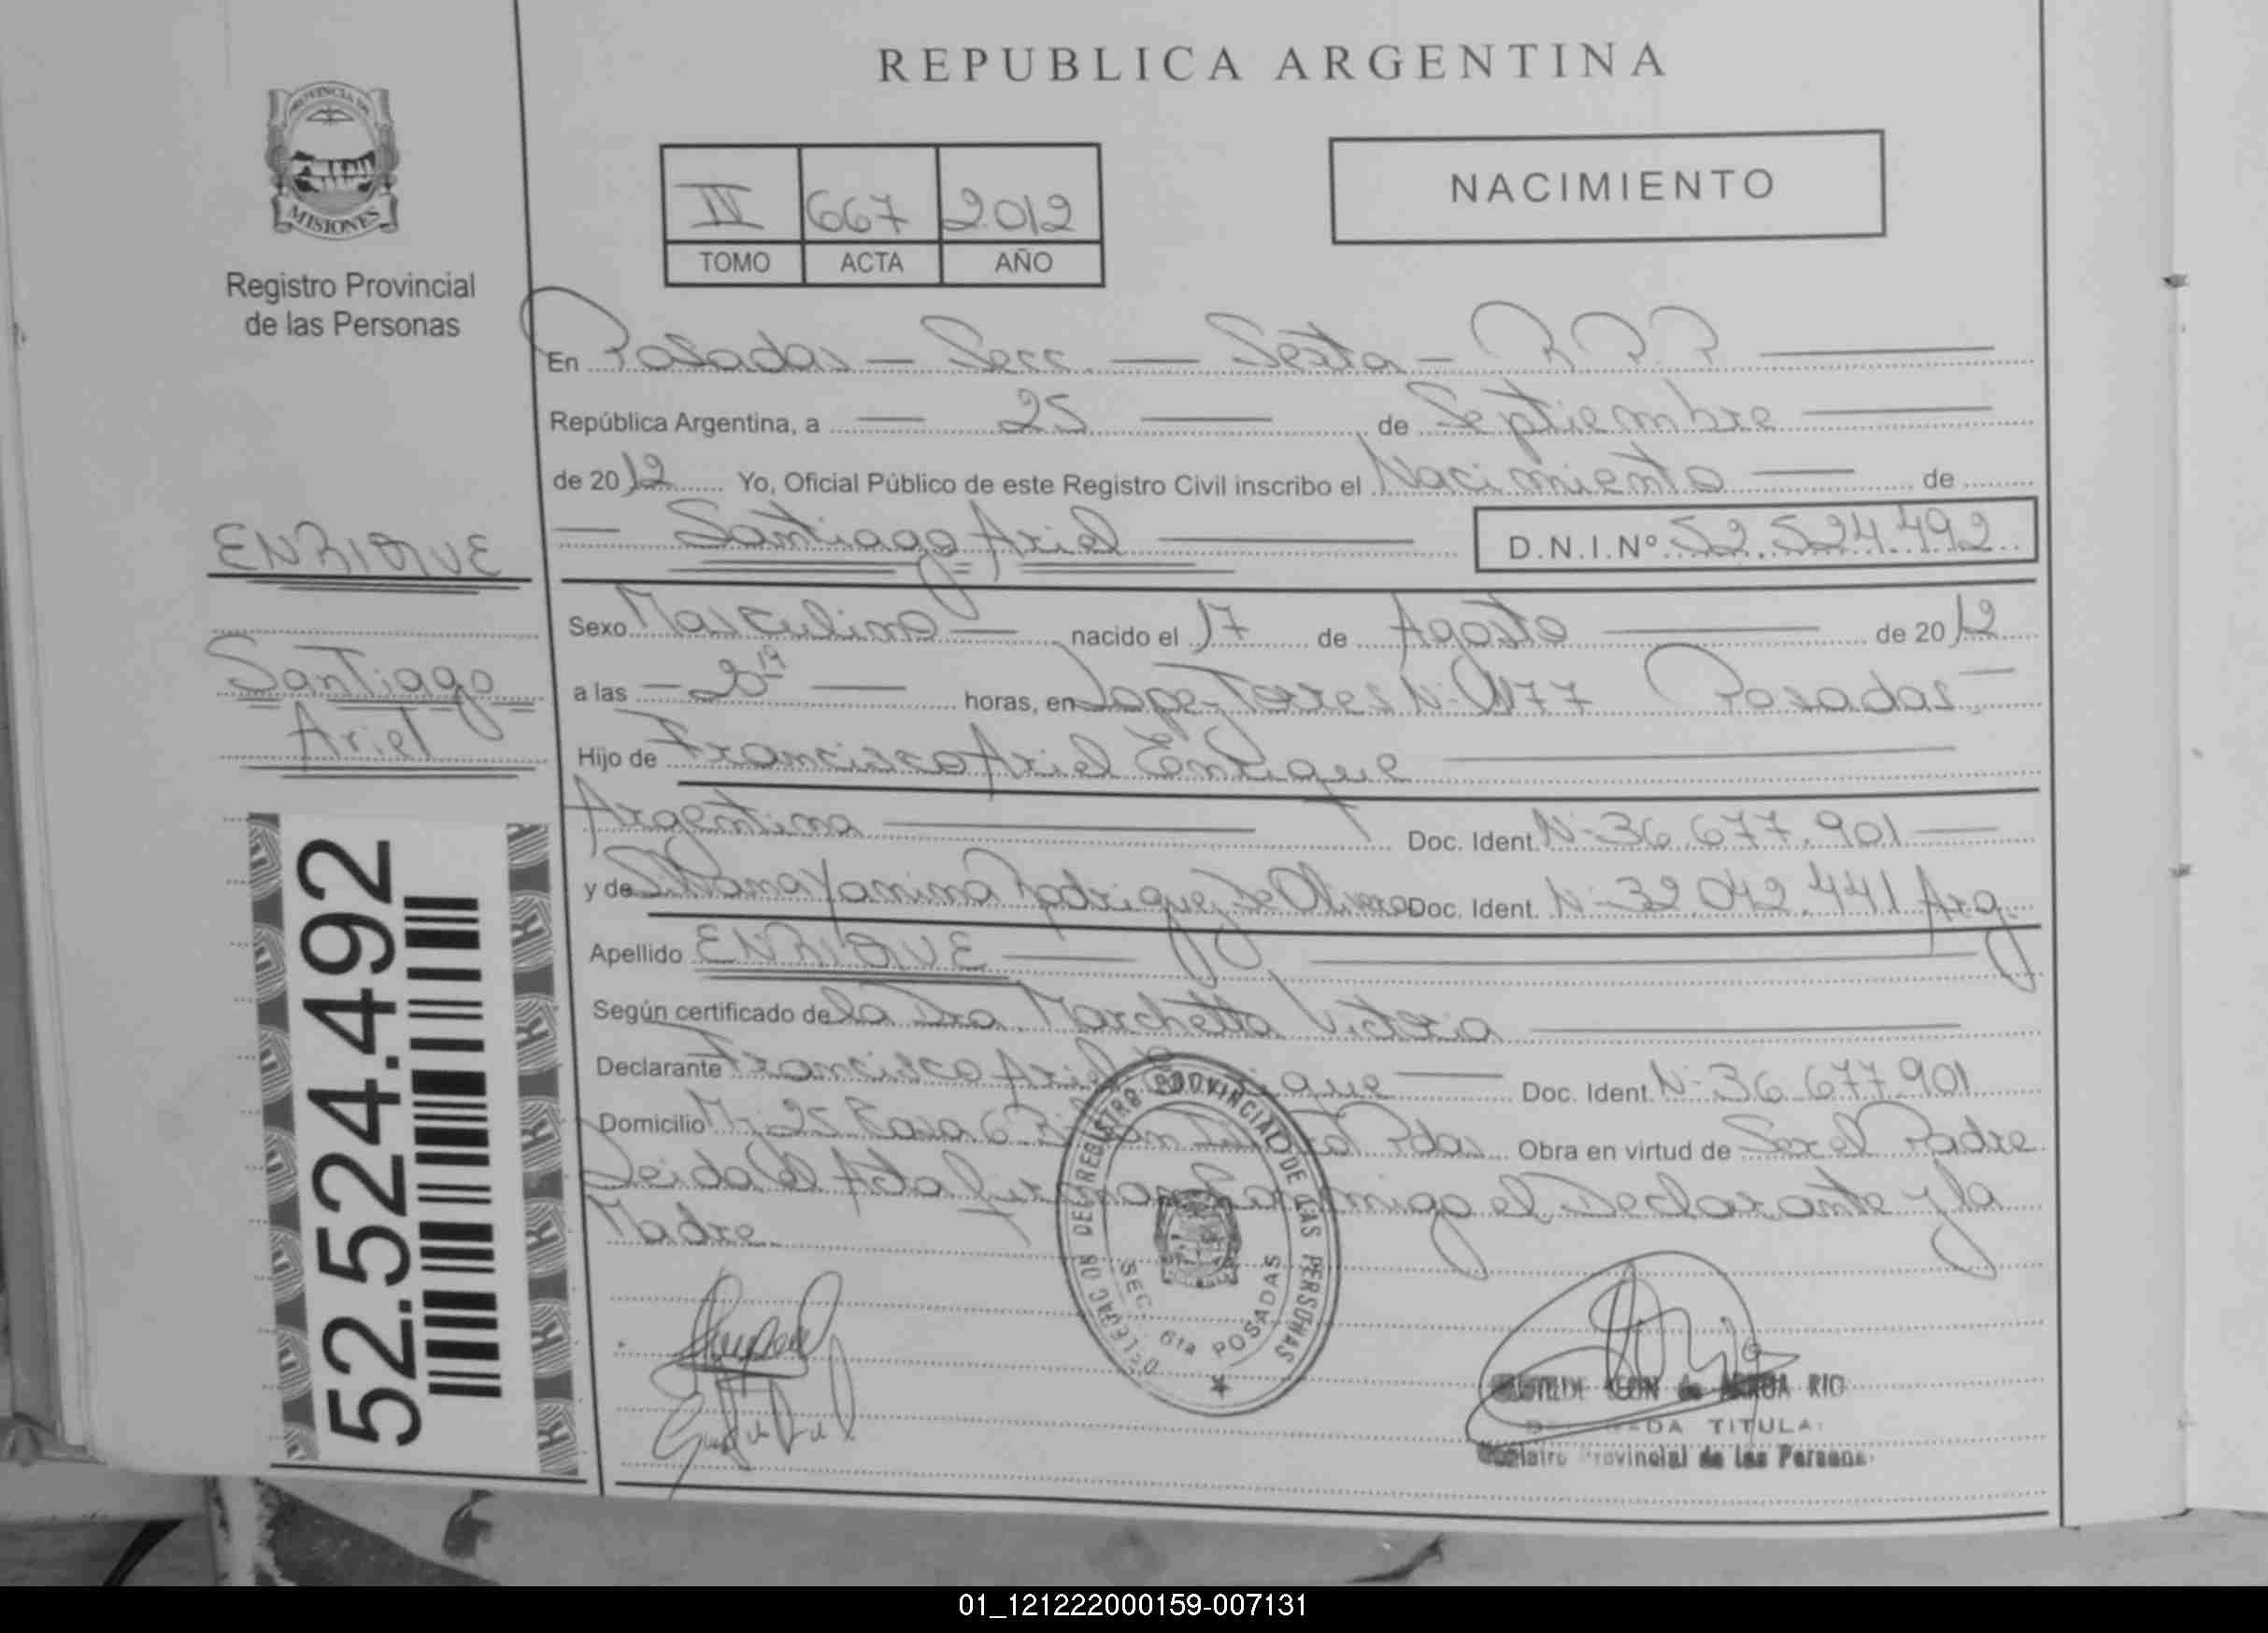 REPUBLICA ARGENTINA
PROVINCIA DE
MISIONES
Registro Provincial
de las Personas
IV 667 2012
TOMO ACTA AÑO
NACIMIENTO
En Posadas - Secc. - Sexta - R.P.P
República Argentina, a 25 de Septiembre
de 2012 Yo, Oficial Público de este Registro Civil inscribo el Nacimiento de
Santiago Ariel D.N.I.Nº 52.524.492
ENRIQUE
Santiago
Ariel
Sexo Masculino nacido el 17 de Agosto de 2012
a las 20 19 horas, en Lope Torres Nº 177 Posadas
Hijo de Francisco Ariel Enrique
Argentina Doc. Ident. Nº 36.677.901
y de Yanina Rodriguez De Olivera Doc. Ident. Nº 32.042.441 Arg.
Apellido ENRIQUE
Según certificado de la Dra. Marchetto Victoria
Declarante Francisco Ariel Enrique Doc. Ident. Nº 36.677.901
Domicilio 25 Casa 6 Pdas Obra en virtud de Ser el Padre
Leida el Acta firman conmigo el Declarante y la
Madre.
52.524.492
REGISTRO PROVINCIAL DE LAS PERSONAS
SEC. 6ta POSADAS
TITULA
Provincial de las Persona
01_121222000159-007131